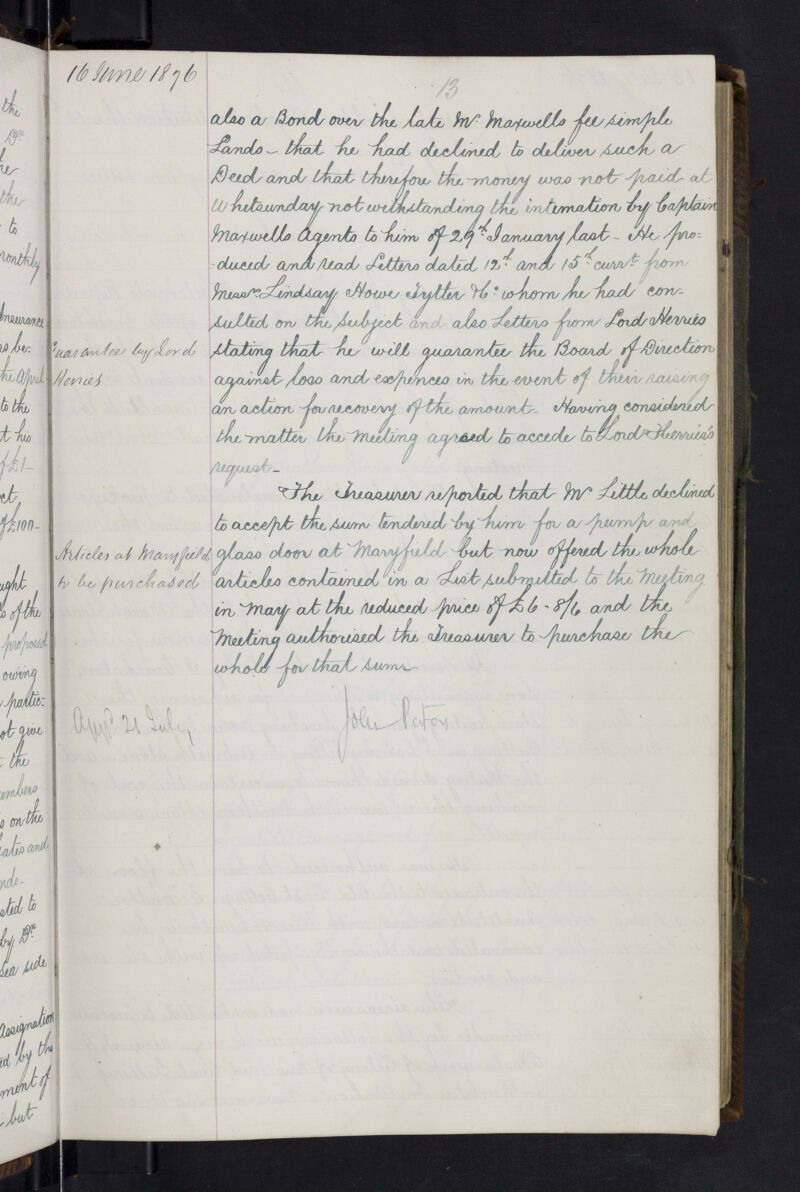 16 June 1876
13
also a Bond over the late Mr. Maxwells fee simple
Lands - that he had declined to deliver such a
Deed and that therefore the money was not paid at
Whitsunday notwithstanding the intemation by Captain
Maxwells Agents to him of 29th January last - He pro=
=duced and read Letters dated 12th and 15th currt. from
Messrs. Lindsay Howe Tytler &Co. whom he had con-
sulted on the subject and also Letters from Lord Herries
Guarantee by Lord
Herries
stating that he will guarantee the Board of Direction
against loss and expences in the event of their raising
an action for recovery of the amount - Having considered
the matter the Meeting agreed to accede to Lord Herries's
request -
The Treasurer reported that Mr. Little declined
to accept the sum tendered by him for a pump and
Articles at Maryfield
to be purchased
glass door at Maryfield but now offered the whole
articles contained in a List submitted to the Meeting
in May at the reduced price of £6-8/6 and the
Meeting authorised the Treasurer to purchase the
whole for that sum
21 July
John
the
Dr.
the
the
- to
monthly
Insurance
as be-
the April
to the
t his
of £1-
ct
of £100-
ught
s of the
proposed
owing
partic=
ot give
- the
embers
s on the
cates and
nds-
sted to
by Dr.
sea side
Assignation
ed by the
ment of
- but